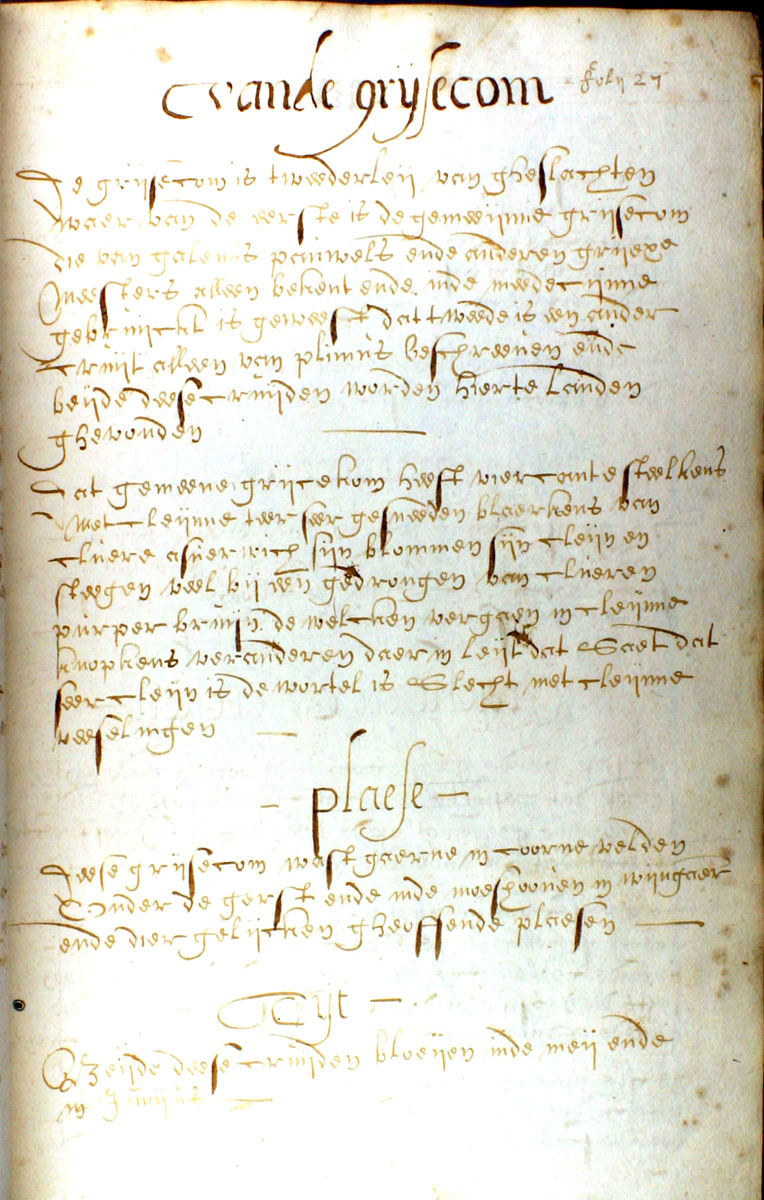 vande grijsecom
foly 27
De grijsecom is tweederleij van gheslachten
waer van de eerste is de gemeijnne grijsecom
die van galenus pauwels ende anderen griexe
Meesters alleen bekent ende inde medecijnne
gebruickt is geweest dat tweede is een ander
cruijt alleen van plinius beschreeuen ende
beijde deese cruijden worden hier te landen
gheuonden
Dat gemeene grijcekom heeft viercante steelkens
Met cleijnne teer seer gesneeden blaerkens van
cluere asuerwich sijn blommen sijn cleijn en
steegen veel bij een gedrongen van clueren
purper bruijn de welcken vergaen in cleijnne
knopkens veranderen daer in leijt dat Saet dat
seer cleijn is de wortel is Slecht met cleijnne
veeselingen
plaese
Deese grijsecom wast gaerne in coorne velden
Onder de gerst ende inde moeshoouen in wijngaer
ende dier gelijcken gheoffende plaesen
Tijt
Beijde deese cruijden bloeijen inde meij ende
in Junijus